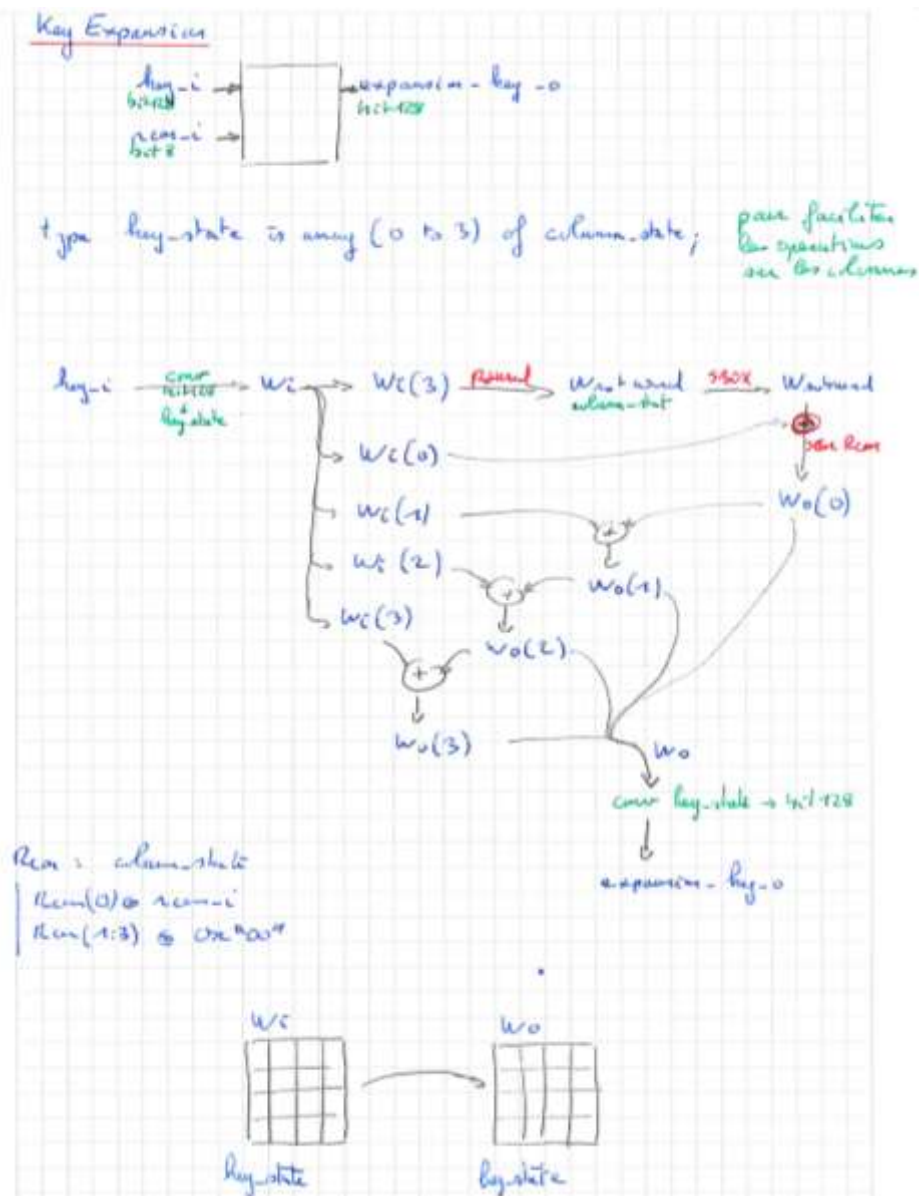 Key Expansion
key_i → expansion_key_o
bit128 bit128
rcon_i →
bit8
type key_state is array (0 to 3) of column_state; pour faciliter
les opérations
sur les colonnes
key_i conv bit128 → key_state Wi Wi(3) Rotword Wrotword column_state SBOX
+
Wi(0) Rcon
Wi(1) + Wo(0)
Wi(2) + Wo(1)
Wi(3) Wo(2)
+
Wo(3) Wo
conv key_state → bit128
expansion_key_o
Rcon : column_state
Rcon(0) rcon_i
Rcon(1:3) "00"
Wi Wo
key_state key_state